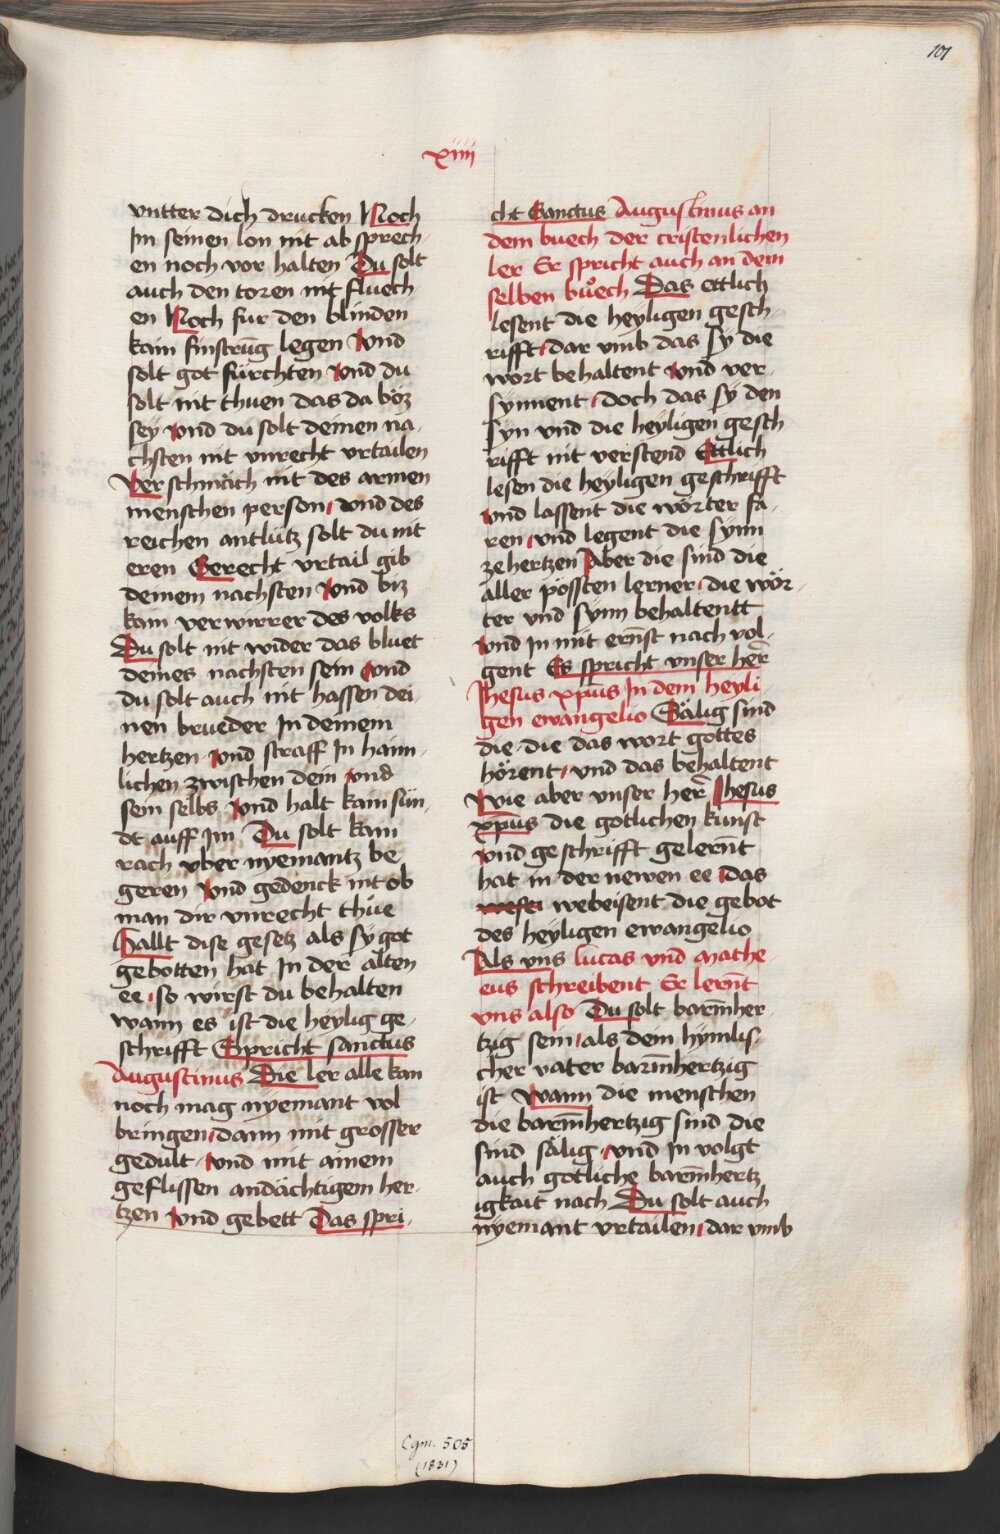 101
xiiii
vntter dich drucken Noch
Im seinen lon nit ab sprech-
en noch vor halten Du solt
auch den toren nit fluech
en Noch fur den blinden
kain finstrūg legen Vnd
solt got fürchten Vnd du
solt nit thuen das da böz
sey Vnd du solt deinen na-
chsten nit vnrecht vrtailen
Ver schmäch nit des armen
menschen person, vnd des
reichen antlütz solt du nit
eren Gerecht vrtail gib
deinem nachsten Vnd biz
kain ver wirrer des volks
Du solt nit wider das bluet
deines nachsten sein Vnd
du solt auch nit hassen dei-
nen brueder In deinem
hertzen Vnd straff In haim-
lichen zwischen dein vnd
sein selbs Vnd halt kain sün-
dt auff Im Du solt kain
rach vber nyemantz be
geren Vnd gedenck nit ob
man dir vnrecht thüe
Hallt dise gesetz als sy got
gebotten hat In der alten
ee, so wirst du behalten
wann es ist die heylig ge-
schrifft Spricht sanctus
Augustinus Die ler alle kan
noch mag nyemant vol
bringen, dann mit grosser
gedult, Vnd mit ainem
geflissen andächtigem her-
tzen Vnd gebett Das spri-
cht Sanctus Augustinus an
dem buech der cristenlichen
ler Er spricht auch an dem
selben bůech Das ettlich
lesent die heyligen gesch-
rifft, dar vmb das sy die
wort behaltent Vnd ver-
synnent, doch das sy den
syn vnd die heyligen gesch
rifft nit verstend Ettlich
lesen die heyligen geschrifft
Vnd lassent die wörter fa-
ren, vnd legent die synn
ze hertzen Aber die sind die
aller pössten lerner, die wör-
ter vnd synn behaltentt
Vnd In mit ernst nach vol-
gent Es spricht vnser her̄
Jhesus xp̄us In dem heyli-
gen ewangelio Sälig sind
die, die das wort gottes
hörent, vnd das behaltent
Wie aber vnser her̄ Jhesus
xp̄us die gotlichen kunst
Vnd geschrifft gelern̄t
hat in der newen ee, das
webeisent die gebot
des heyligen ewangelio
Als vns lucas vnd mathe
eus schreibent Er lern̄t
vns also Du solt barm̄her-
tzig sein, als dem hymlis-
cher vater barm̄hertzig
ist Wann die menschen
die barm̄hertzig sind die
sind sälig, Vnd In volgt
auch gotliche barm̄hertz
igkait nach Du solt auch
nyemant vrtailen, dar vmb
Cgm. 505
(1831)